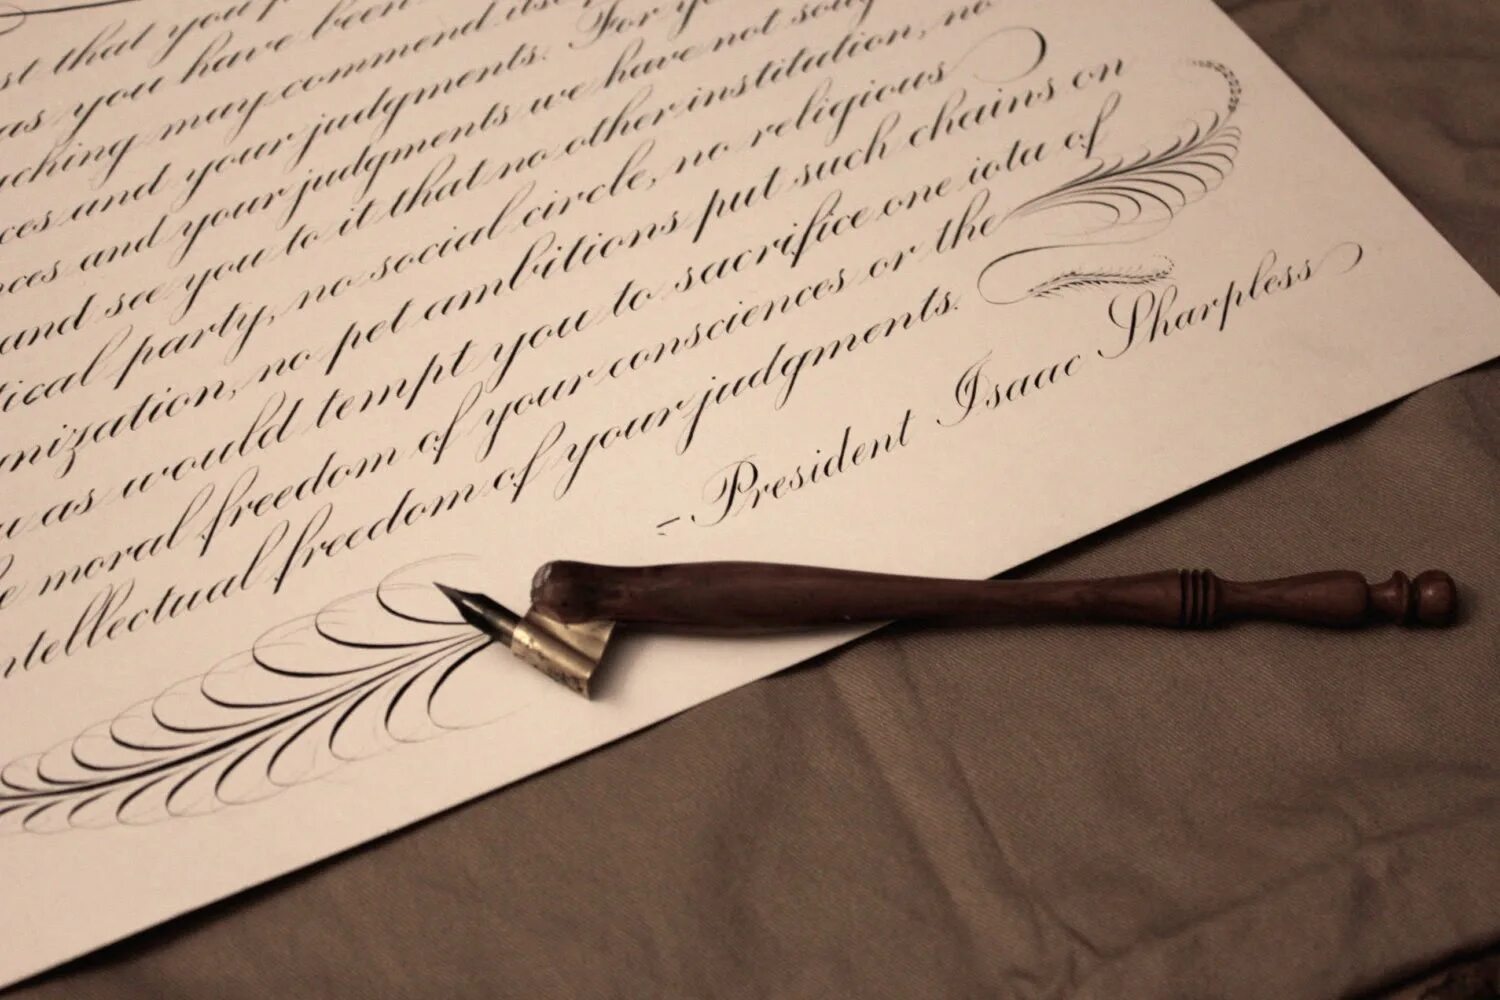 st that you
as you have been
ching may commend itse
ces and your judgments. For yo
nces and your judgments we have not soug
and see you to it that no other institution, no
tical party, no social circle, no religious
nization, no pet ambitions put such chains on
u as would tempt you to sacrifice one iota of
e moral freedom of your consciences or the
ntellectual freedom of your judgments.
- President Isaac Sharpless